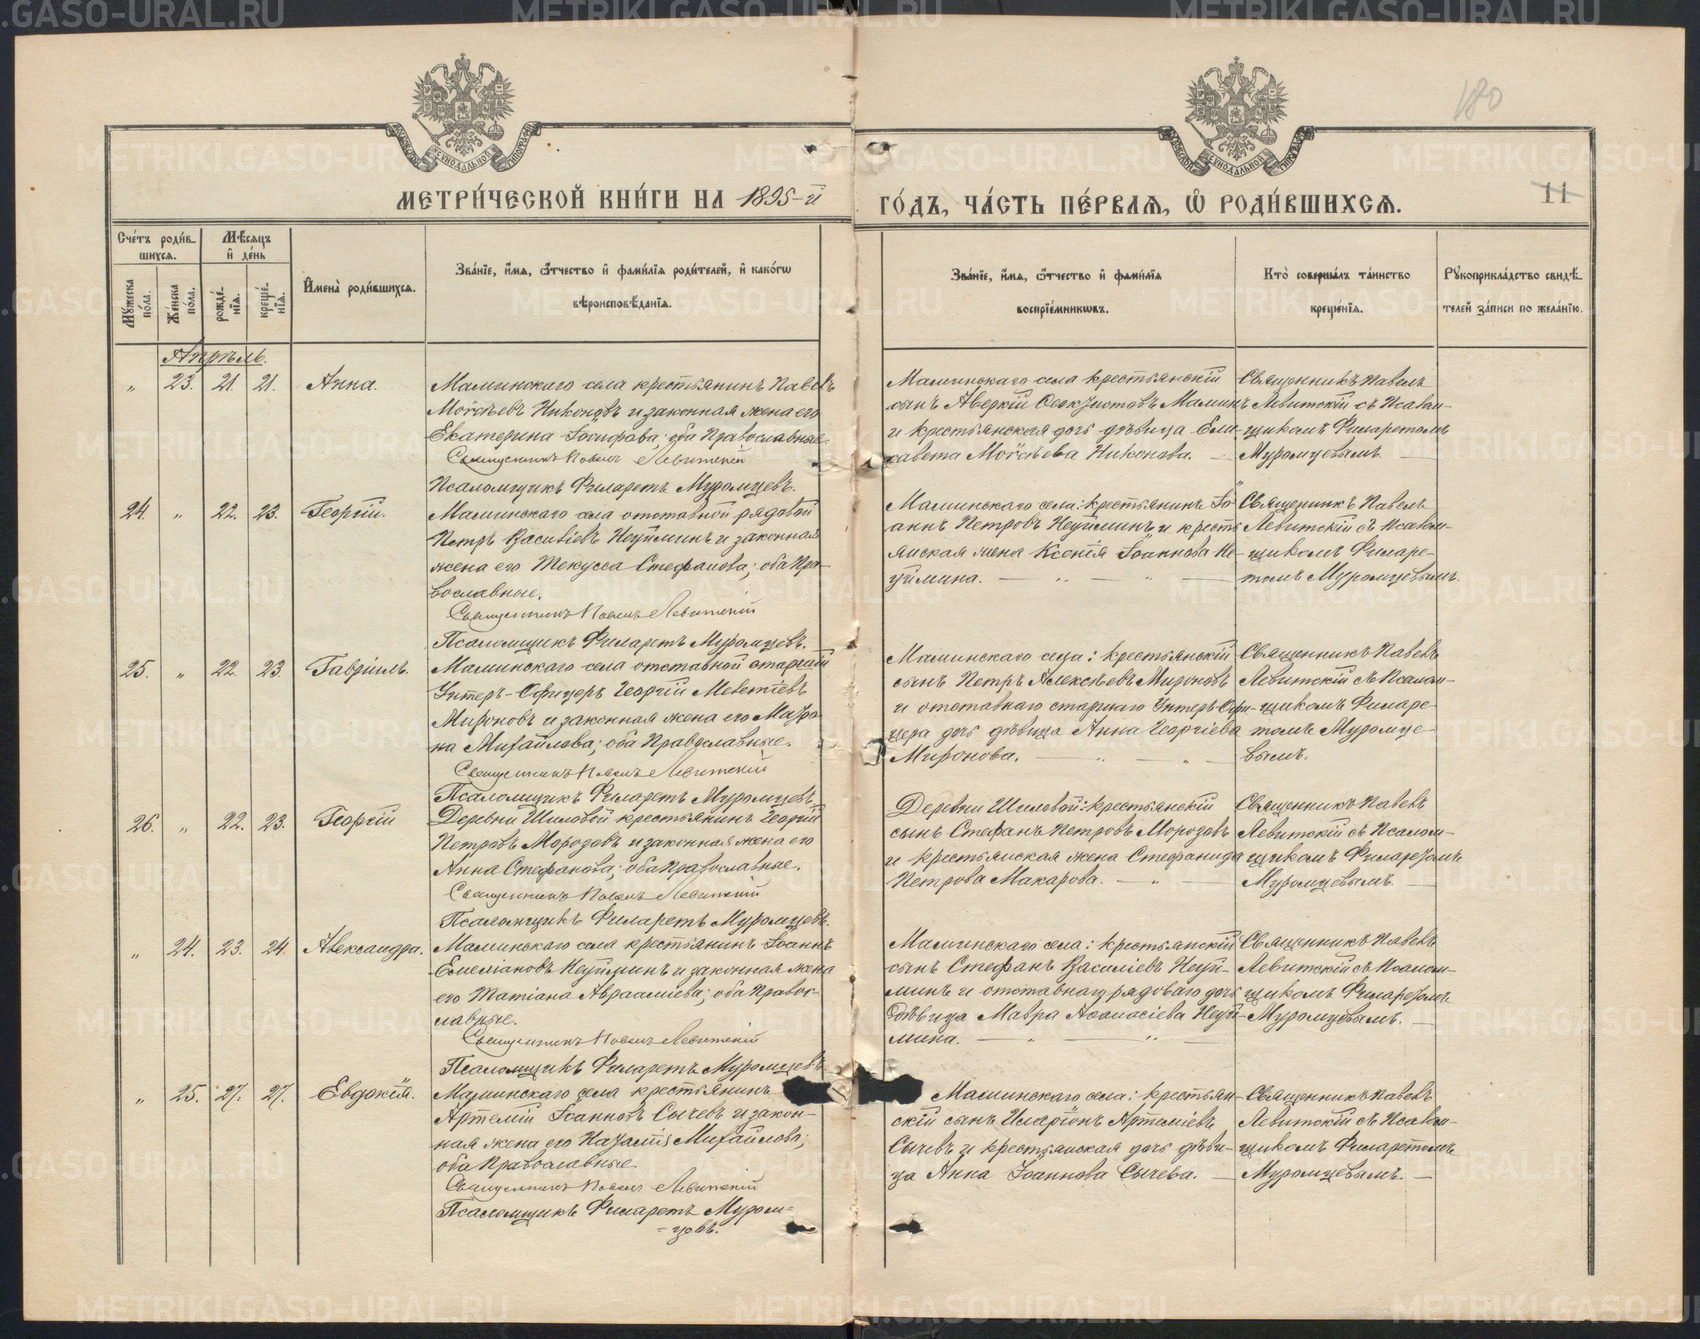 180
МЕТРИ́ЧЕСКОЙ КНИ́ГИ НА 1895-й
ГО́ДЪ, ЧА́СТЬ ПЕ́РВАЯ, Ѽ РОДИ́ВШИХСЯ.
11
Сче́тъ роди́в-
шихся.
Мѣ́сяцъ
и҆ де́нь
Мꙋжеска по́ла.
Же́нска по́ла.
рожде́-
нїѧ.
креще́-
нїѧ.
И҆мена̀ роди́вшихся.
Зва́нїе, и҆́мя, ѻ҆́тчество и҆ фами́лїя роди́телей, и҆ како́гѡ
вѣроисповѣ́данїя.
Зва́нїе, и҆́мя, ѻ҆́тчество и҆ фами́лїя
воспрїе́мникѡвъ.
Кто̀ соверша́лъ та́инство
креще́нїя.
Рꙋкоприкла́дство свидѣ́-
телей за́писи по жела́нїю.
Апрѣль.
" 23. 21. 21. Анна.
Маминскаго села крестьянинъ Павелъ
Моѵсѣевъ Никоновъ и законная жена его
Екатерина Іосифова; оба Православные.
Священникъ Павелъ Левитскій
Псаломщикъ Филаретъ Муромцевъ.
Маминскаго села крестьянскій
сынъ Аверкій Ѳеоктистовъ Маминъ
и крестьянская дочь дѣвица Ели-
савета Моѵсѣева Никонова.
Священникъ Павелъ
Левитскій съ Псалом-
щикомъ Филаретомъ
Муромцевымъ.
24. " 22. 23. Георгій.
Маминскаго села отставной рядовой
Петръ Василіевъ Неуйминъ и законная
жена его Текусса Стефанова; оба Пра-
вославные.
Священникъ Павелъ Левитскій
Псаломщикъ Филаретъ Муромцевъ.
Маминскаго села: крестьянинъ Іо-
аннъ Петровъ Неуйминъ и кресть-
янская жена Ксенія Іоаннова Не-
уймина.
Священникъ Павелъ
Левитскій съ Псалом-
щикомъ Филаре-
томъ Муромцевымъ.
25. " 22. 23. Гавріилъ.
Маминскаго села отставной старшій
Унтеръ-Офицеръ Георгій Мелетіевъ
Мироновъ и законная жена его Матро-
на Михайлова; оба Православные.
Священникъ Павелъ Левитскій
Псаломщикъ Филаретъ Муромцевъ.
Маминскаго села: крестьянскій
сынъ Петръ Алексѣевъ Мироновъ
и отставнаго старшаго Унтеръ-Офи-
цера дочь дѣвица Анна Георгіева
Миронова.
Священникъ Павелъ
Левитскій съ Псалом-
щикомъ Филаре-
томъ Муромце-
вымъ.
26. " 22. 23. Георгій
Деревни Шиловой крестьянинъ Георгій
Петровъ Морозовъ и законная жена его
Анна Стефанова; оба Православные.
Священникъ Павелъ Левитскій
Псаломщикъ Филаретъ Муромцевъ.
Деревни Шиловой: крестьянскій
сынъ Стефанъ Петровъ Морозовъ
и крестьянская жена Стефанида
Петрова Макарова.
Священникъ Павелъ
Левитскій съ Псалом-
щикомъ Филаретомъ
Муромцевымъ.
" 24. 23. 24. Александра.
Маминскаго села крестьянинъ Іоаннъ
Емеліановъ Неуйминъ и законная жена
его Татіана Авраамиева; оба Правос-
лавные.
Священникъ Павелъ Левитскій
Псаломщикъ Филаретъ Муромцевъ.
Маминскаго села: крестьянскій
сынъ Стефанъ Василіевъ Неуй-
минъ и отставнаго рядоваго дочь
дѣвица Мавра Аѳанасіева Неуй-
мина.
Священникъ Павелъ
Левитскій съ Псалом-
щикомъ Филаретомъ
Муромцевымъ.
" 25. 27. 27. Евдокія.
Маминскаго села крестьянинъ
Артемій Іоанновъ Сычевъ и закон-
ная жена его Наталія Михайлова;
оба Православные.
Священникъ Павелъ Левитскій
Псаломщикъ Филаретъ Муром-
цевъ.
Маминскаго села: крестьян-
скій сынъ Иларіонъ Артеміевъ
Сычевъ и крестьянская дочь дѣви-
ца Анна Іоаннова Сычева.
Священникъ Павелъ
Левитскій съ Псалом-
щикомъ Филаретомъ
Муромцевымъ.